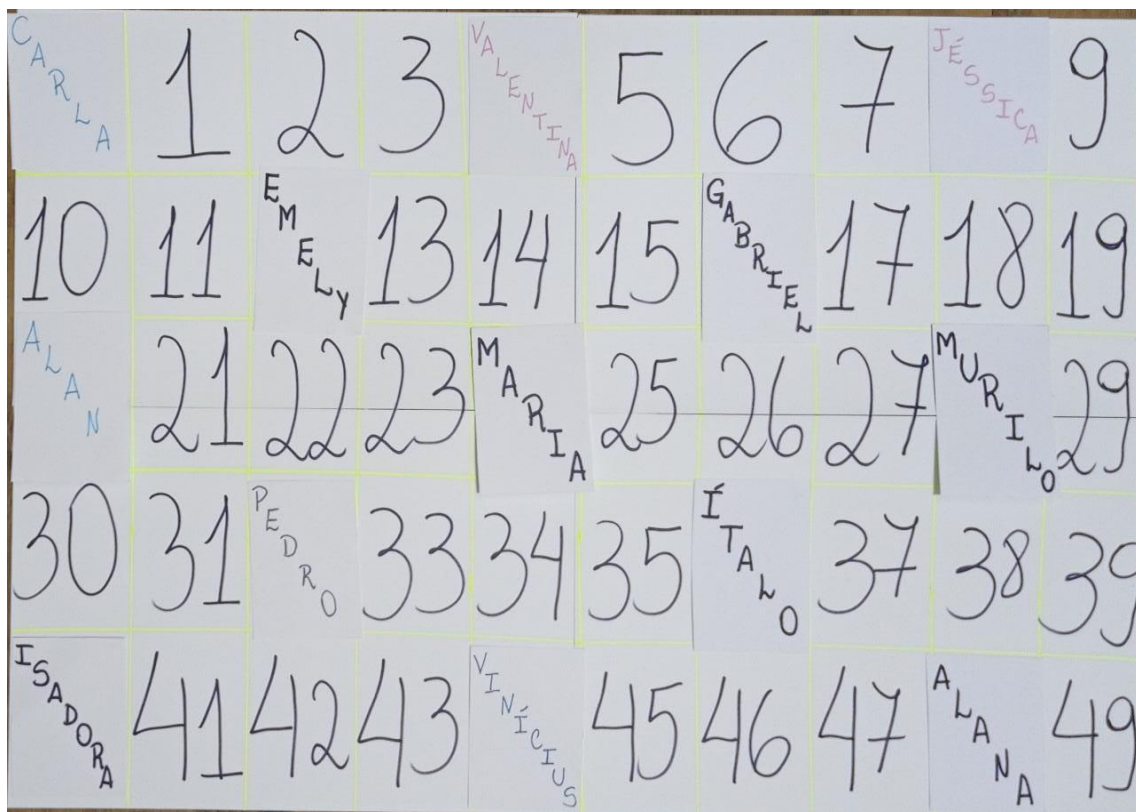 CARLA 1 2 3 VALENTINA 5 6 7 JÉSSICA 9
10 11 EMELY 13 14 15 GABRIEL 17 18 19
ALAN 21 22 23 MARIA 25 26 27 MURILO 29
30 31 PEDRO 33 34 35 ÍTALO 37 38 39
ISADORA 41 42 43 VINÍCIUS 45 46 47 ALANA 49